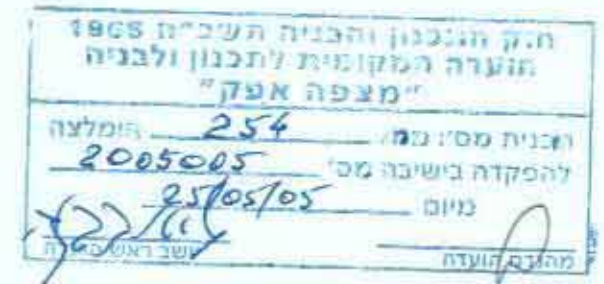 חוק התכנון והבניה תשכ"ה 1965
הועדה המקומית לתכנון ולבניה
"מצפה אפק"
תכנית מס': ממ/ 254 הומלצה
להפקדה בישיבה מס' 2005005
מיום 25/05/05
יושב ראש הועדה
מהנדס הועדה